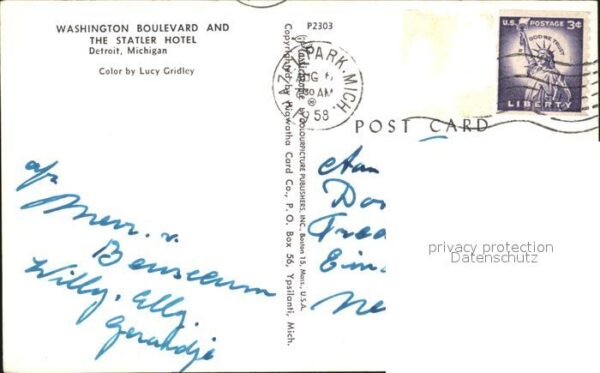 WASHINGTON BOULEVARD AND
THE STATLER HOTEL
Detroit, Michigan
Color by Lucy Gridley
P2303
Plastichrome by COLOURPICTURE PUBLISHERS, INC., Boston 15, Mass., U.S.A.
Copyrighted by Hiawatha Card Co., P. O. Box 56, Ypsilanti, Mich.
PARK, MICH.
AUG
30 AM
1958
U.S. POSTAGE 3¢
IN GOD WE TRUST
LIBERTY
POST CARD
Mevr. v.
Willy, Elly,
Gerardje
privacy protection
Datenschutz